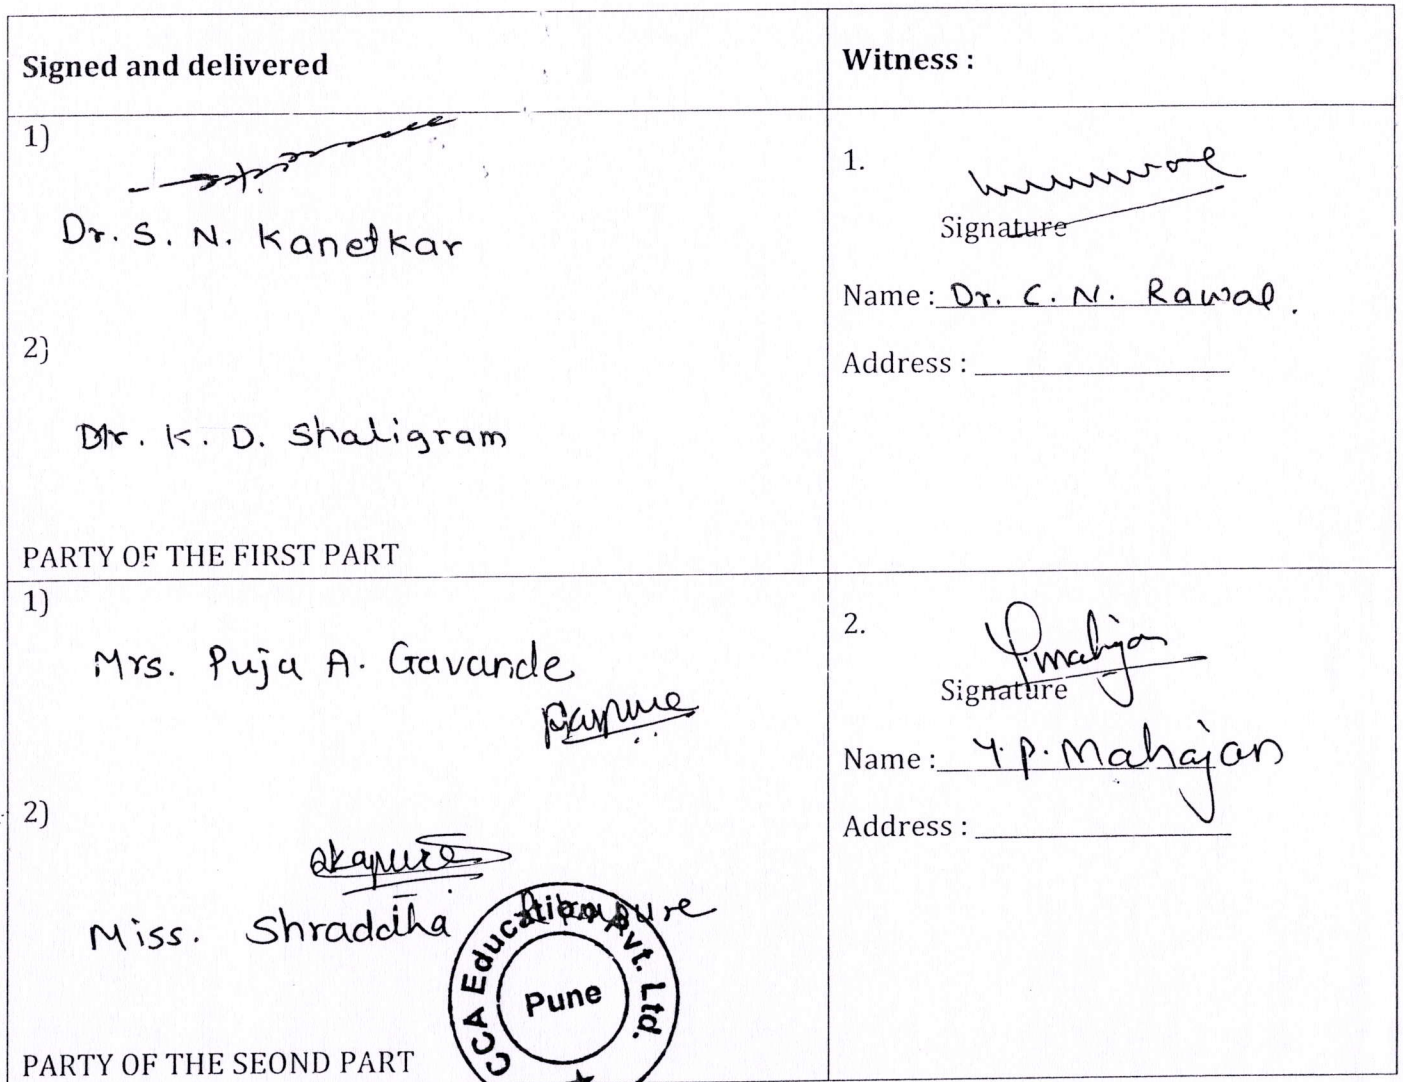 Signed and delivered
Witness :
1)
Dr. S. N. Kanetkar
2)
Dr. K. D. Shaligram
PARTY OF THE FIRST PART
1.
Signature
Name : Dr. C. N. Rawal.
Address :
1)
Mrs. Puja A. Gavande
2)
Miss. Shraddha
CCA Education Pvt. Ltd.
Pune
PARTY OF THE SEOND PART
2.
Y.mahajan
Signature
Name : Y. P. Mahajan
Address :